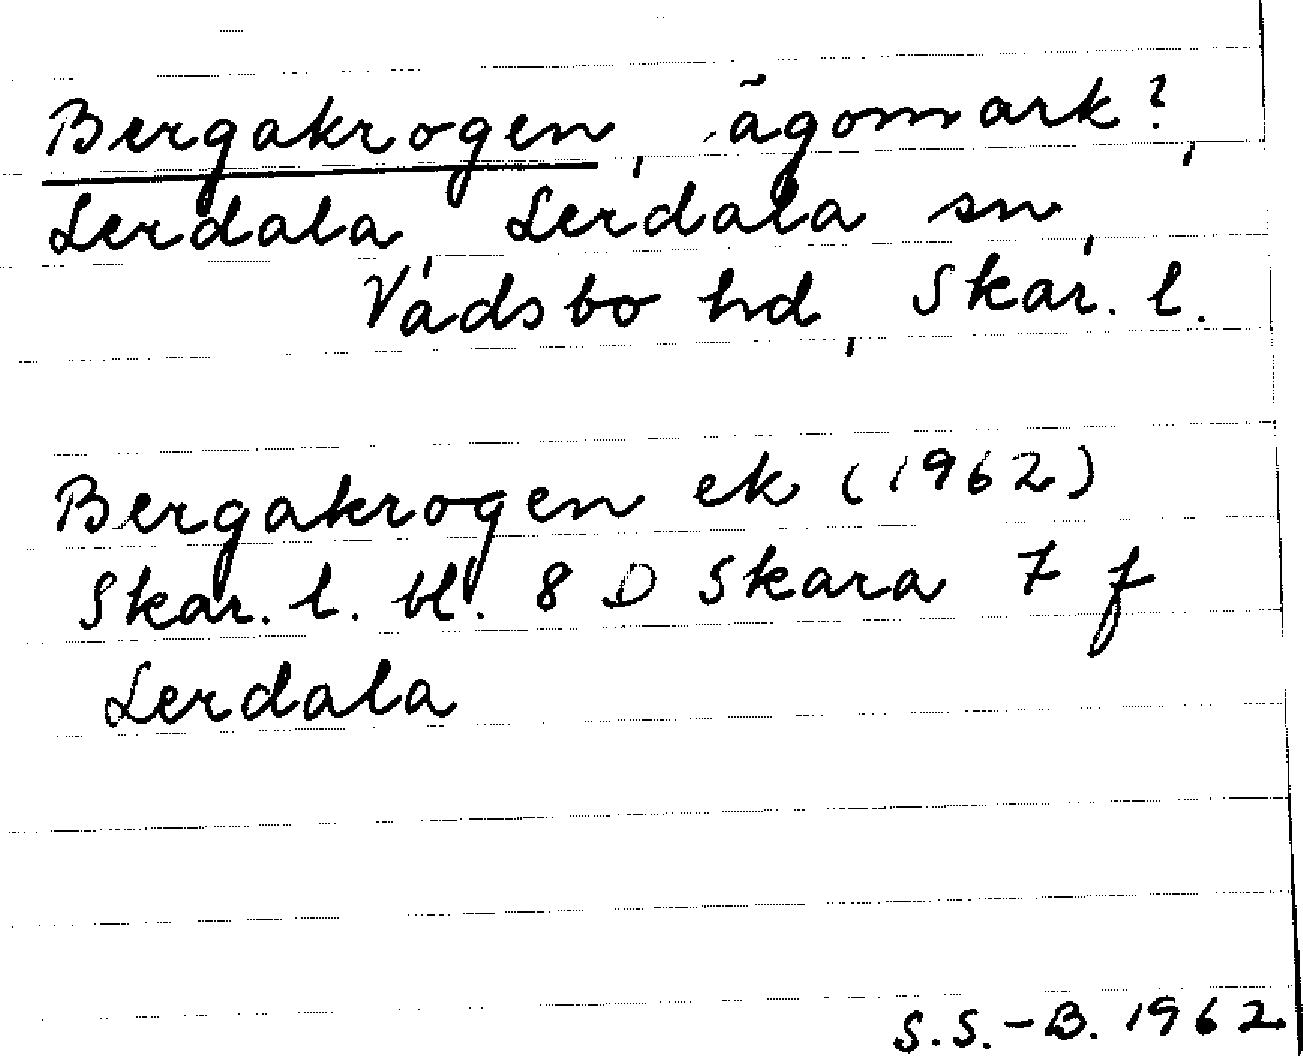 Bergakrogen, ägomark?,
Lerdala, Lerdala sn,
Vadsbo hd, Skar. l.
Bergakrogen ek (1962)
Skar. l. bl. 8 D Skara 7 f
Lerdala
S.S.-B. 1962